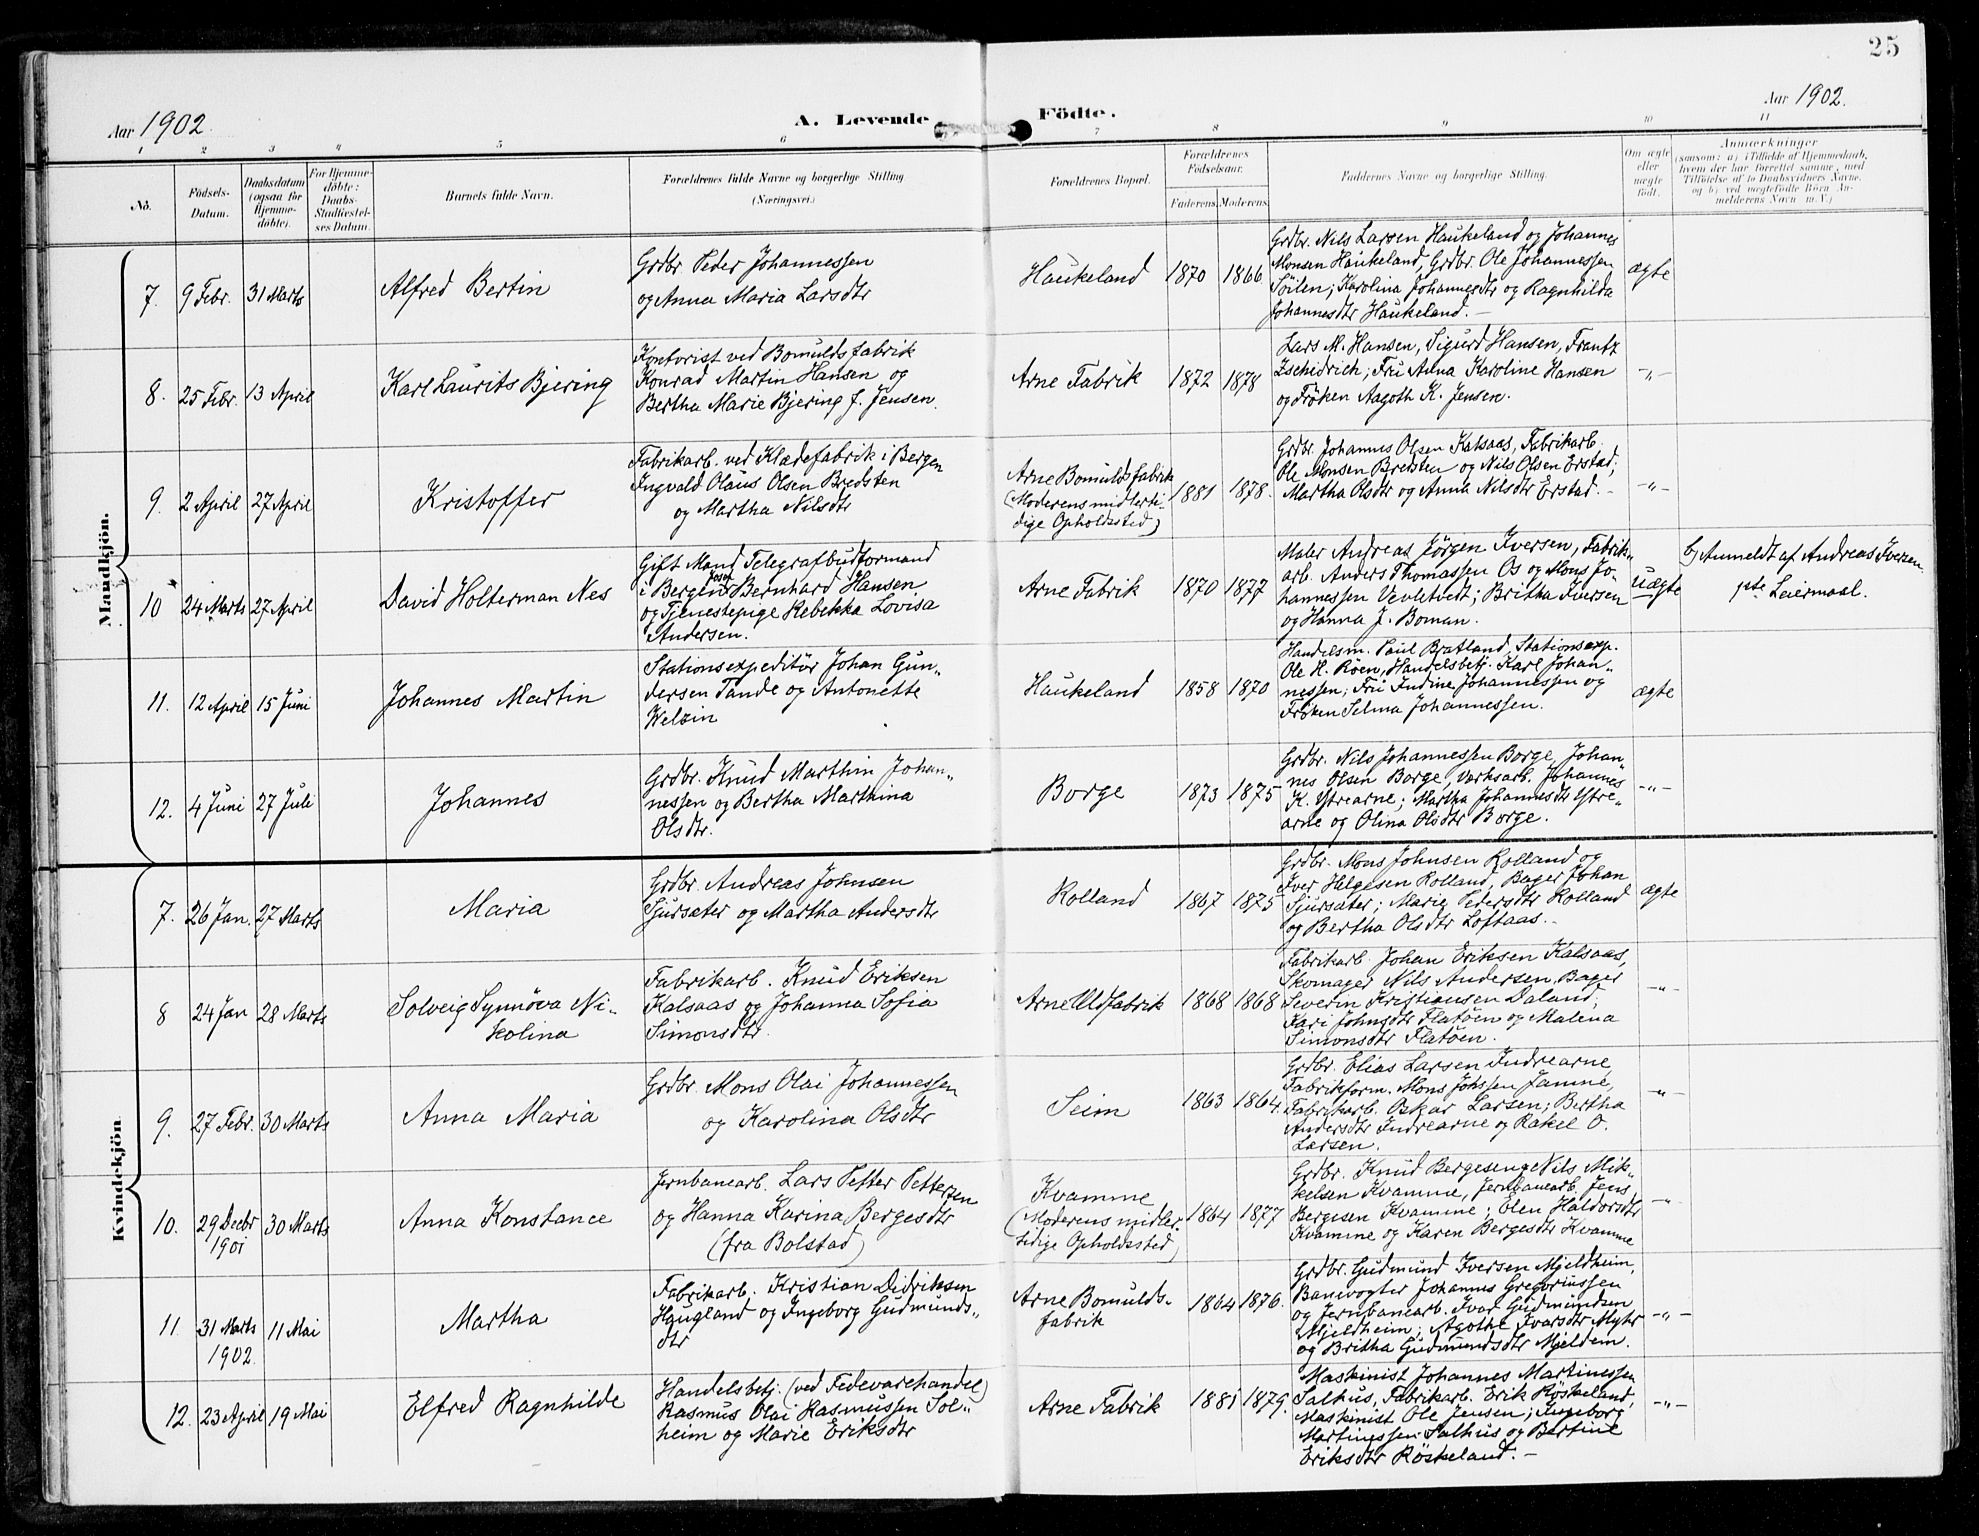 25
Aar 1902.
A. Levende
Födte.
Aar 1902.
1 2 3 4 5 6 7 8 9 10 11
No.
Födsels-
Datum.
Daabsdatum
(ogsaa for
Hjemme-
døbte).
For Hjemme-
døbte:
Daabs-
Stadfæstel-
ses Datum.
Barnets fulde Navn.
Forældrenes fulde Navne og borgerlige Stilling
(Næringsvei.)
Forældrenes Bopæl.
Forældrenes
Födselsaar.
Faderens. Moderens.
Faddernes Navne og borgerlige Stilling.
Om ægte
eller
uægte
födt.
Anmærkninger
(saasom: a) i Tilfælde af Hjemmedaab,
hvem der har forrettet samme, med
Tilföielse af to Daabsvidners Navne,
og b) ved uægtefödte Börn An-
melderens Navn m. V.)
Mandkjön.
7. 9 Febr. 31 Marts
Alfred Bertin
Grdbr. Peder Johannessen
og Anna Maria Larsdtr
Haukeland
1870 1866.
Grdbr. Nils Larsen Haukeland og Johannes
Monsen Haukeland, Grdbr. Ole Johannessen
Söilen; Karolina Johannesdtr og Ragnhilda
Johannesdtr Haukeland. –
ægte
8. 25 Febr. 13 April
Karl Laurits Bjering
Kontorist ved Bomuldsfabrik
Konrad Martin Hansen og
Bertha Marie Bjering f. Jensen.
Arne Fabrik
1872 1878
Lars M. Hansen, Sigurd Hansen, Frantz
Zschidrich; Fru Anna Karoline Hansen
og Frøken Aagoth K. Jensen.
-"-
9. 2 April 27 April
Kristoffer
Fabrikarb. ved Klædefabrik i Bergen
Ingvald Olaus Olsen Bredsten
og Martha Nilsdtr
Arne Bomuldsfabrik
(Moderens midlerti-
dige Opholdssted)
1881 1878.
Grdbr. Johannes Olsen Kalsaas, Fabrikarb.
Ole Monsen Bredsten og Nils Olsen Erstad;
Martha Olsdtr og Anna Nilsdtr Erstad. –
-"-
10 24 Marts 27 April
David Holterman Nes
Gift Mand Telegrafbudformand
i Bergen Josef Bernhard Hansen
og Tjenestepige Rebekka Lovisa
Andersen.
Arne Fabrik
1870 1877
Maler Andreas Jörgen Iversen, Fabrik-
arb. Anders Thomassen Os og Mons Jo-
hannessen Vevletvedt; Britha Iversen
og Hanna J. Boman.
uægte
b) Anmeldt af Andreas Iversen.
1ste Leiermaal.
11. 12 April 15 Juni
Johannes Martin
Stationsexpeditør Johan Gun-
dersen Tande og Antonette
Welzin
Haukeland
1858 1870
Handelsm. Paul Bratland, Stationsexp.
Ole H. Röen, Handelsbetj. Karl Johan-
nessen; Fru Indine Johannessen og
Frøken Selma Johannessen.
ægte
12. 4 Juni 27 Juli
Johannes
Grdbr. Knud Marthin Johan-
nessen og Bertha Marthina
Olsdtr.
Borge
1873 1875
Grdbr. Nils Johannessen Borge, Johan-
nes Olsen Borge, Værksarb. Johannes
K. Ytrearne; Martha Johannesdtr Ytre-
arne og Olina Olsdtr Borge.
-"-
Kvindekjön
7. 26 Jan. 27 Marts
Maria
Grdbr. Andreas Johnsen
Sjursæter og Martha Andersdtr
Rolland
1867 1875
Grdbr. Mons Johnsen Rolland og
Iver Helgesen Rolland, Bager Johan
Sjursæter; Marie Pedersdtr Rolland
og Bertha Olsdtr Loftaas. –
ægte
8 24 Jan 28 Marts
Solveig Synnöva Ni-
kolina
Fabrikarb. Knud Eriksen
Kalsaas og Johanna Sofia
Simonsdtr.
Arne Uldfabrik
1868 1868
Fabrikarb. Johan Eriksen Kalsaas,
Skomager Nils Andersen, Bager
Severin Kristiansen Daland;
Kari Johnsdtr Flatöen og Malena
Simonsdtr Flatöen.
-"-
9. 27 Febr. 30 Marts
Anna Maria
Grdbr. Mons Olai Johannessen
og Karolina Olsdtr
Seim
1863 1864.
Grdbr. Elias Larsen Indrearne,
Fabrikform. Mons Johssen Jamne,
Fabrikarb. Oskar Larsen; Bertha
Andersdtr Indrearne og Rakel O.
Larsen.
-"-
10. 29 Decbr 1901 30 Marts
Anna Konstance
Jernbanearb. Lars Petter Pettersen
og Hanna Karina Bergesdtr
(fra Bolstad)
Kvamme
(Moderens midler-
tidige Opholdssted)
1864 1877
Grdbr. Knud Bergesen og Nils Mik-
kelsen Kvamme, Jernbanearb. Jens
Bergesen Kvamme; Elen Haldorsdtr
Kvamme og Karen Bergesdtr Kvamme
-"-
11. 31 Marts 1902. 11 Mai
Martha
Fabrikarb. Kristian Didriksen
Haugland og Ingeborg Gudmunds-
dtr
Arne Bomulds-
fabrik
1864 1876.
Grdbr. Gudmund Iversen Mjeldheim,
Banevogter Johannes Gregoriussen
og Jernbanearb. Ivar Gudmundsen
Mjeldheim; Agothe Ivarsdtr Myhr
og Britha Gudmundsdtr Mjeldem.
-"-
12. 23 April 19 Mai
Elfred Ragnhilde
Handelsbetj. (ved Fedevarehandel)
Rasmus Olai Rasmussen Sol-
heim og Marie Eriksdtr
Arne Fabrik
1881 1879.
Maskinist Johannes Martinessen
Salhus, Fabrikarb. Erik Röskeland,
Maskinist Ole Jensen; Ingeborg
Martinessen Salhus og Bertine
Eriksdtr Röskeland. –
-"-